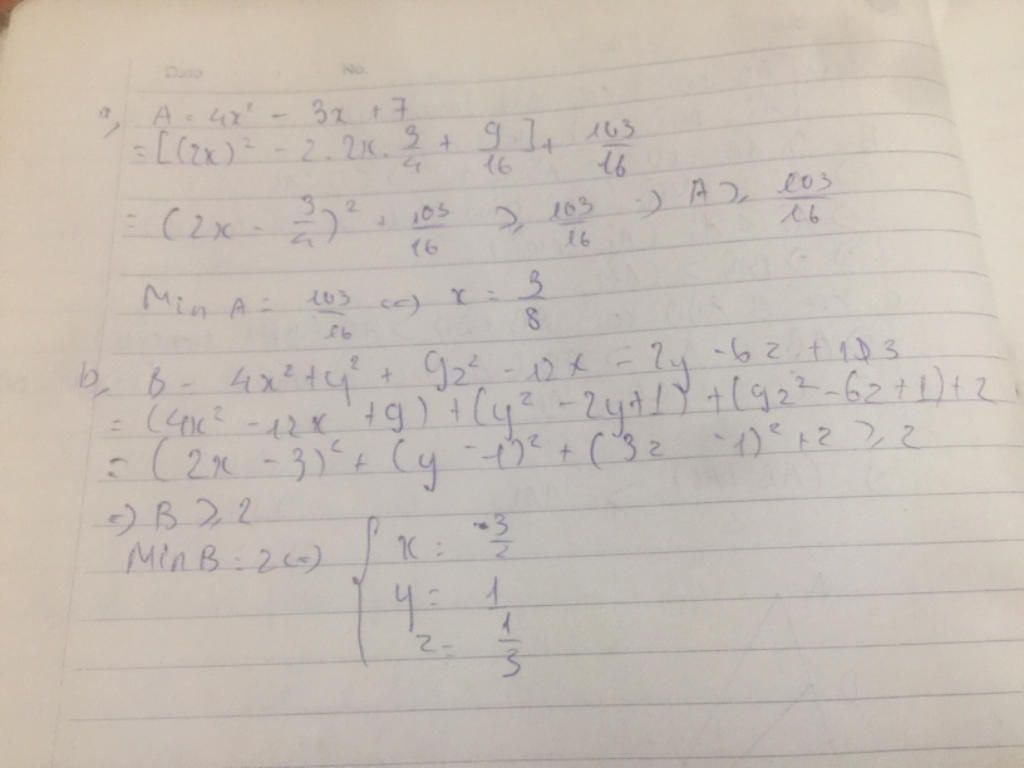 Date No.
a, A = 4x² - 3x + 7
= [(2x)² - 2.2x.3/4 + 9/16] + 103/16
= (2x - 3/4)² + 103/16 ≥ 103/16 => A ≥ 103/16
Min A = 103/16 <=> x = 3/8
b, B = 4x² + y² + 9z² - 12x - 2y - 6z + 13
= (4x² - 12x + 9) + (y² - 2y + 1) + (9z² - 6z + 1) + 2
= (2x - 3)² + (y - 1)² + (3z - 1)² + 2 ≥ 2
=> B ≥ 2
Min B = 2 <=> { x = 3/2
y = 1
z = 1/3